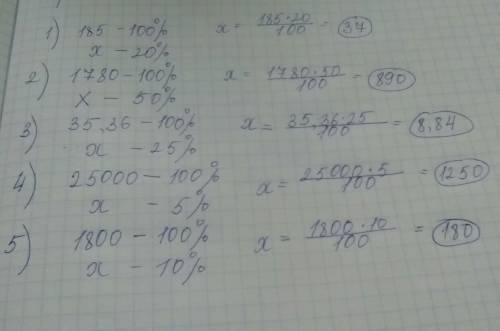 1) 185 – 100% x = 185·20/100 = 37
x – 20%
2) 1780 – 100% x = 1780·50/100 = 890
x – 50%
3) 35,36 – 100% x = 35,36·25/100 = 8,84
x – 25%
4) 25000 – 100% x = 25000·5/100 = 1250
x – 5%
5) 1800 – 100% x = 1800·10/100 = 180
x – 10%